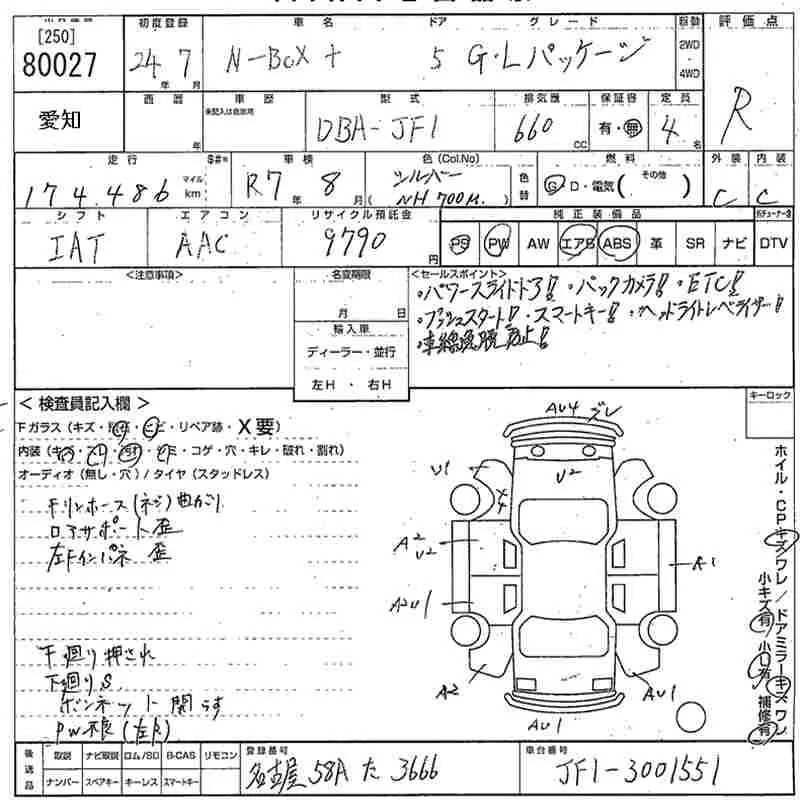 [250]
80027
初度登録
24 7
年 月
車名
N-BOX +
ドア
5
グレード
G・Lパッケージ
駆動
2WD
4WD
評価点
R
愛知
西暦
年
車歴
未記入は自家用
型式
DBA-JF1
排気量
660
CC
保証書
有・無
定員
4
名
走行
174,486
マイル
km
$#*
車検
R7 年 8 月
色 (Col.No)
シルバー
( NH 700M. )
色替
燃料
G D・電気 ( その他 )
外装
C
内装
C
シフト
IAT
エアコン
AAC
リサイクル預託金
9790
円
純正装備品
PS PW AW エアB ABS 革 SR ナビ
DTV
<注意事項>
名変期限
月 日
輸入車
ディーラー・並行
左H ・ 右H
<セールスポイント>
・パワースライドドア!! ・バックカメラ!! ・ETC!!
・プッシュスタート!! ・スマートキー!! ・ヘッドライトレベライザー!!
・車線逸脱防止!!
キーロック
< 検査員記入欄 >
下ガラス (キズ・ ・ヒビ・リペア跡・X要)
内装 ( ・コゲ・穴・キレ・破れ・割れ)
オーディオ (無し・穴) / タイヤ (スタッドレス)
ロアサポート歪
左Fインパネ 歪
下廻り押され
下廻りS
ボンネット開らず
PW不良 (左R)
AU4 ズレ
U1
U2
A2
U2
A2U1
A-1
A2
AU1
AU1
ホイル・CPキズワレ/ドアミラーキズワレ
小キズ有 小凹有 補修有
後送品
取説 ナビ取説 ロム/SD B-CAS リモコン
ナンバー スペアキー キーレス スマートキー
登録番号
名古屋 58A た 3666
車台番号
JF1-3001551